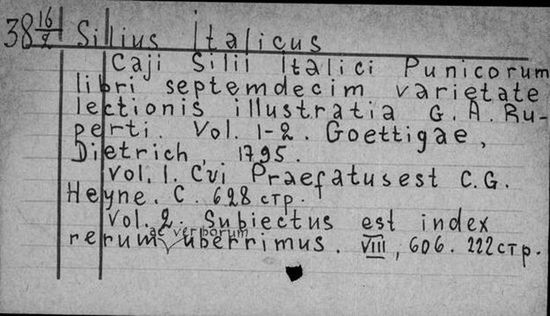 38 16/2 Silius Italicus
Caji Silii Italici Punicorum
libri septemdecim varietate
lectionis illustratia G. A. Ru-
perti. Vol. 1-2. Goettigae,
Dietrich, 1795.
Vol. 1. Cui Praefatusest C.G.
Heyne. C. 628 стр.
Vol. 2. Subiectus est index
ac verborum
rerum uberrimus. VIII, 606. 222 стр.